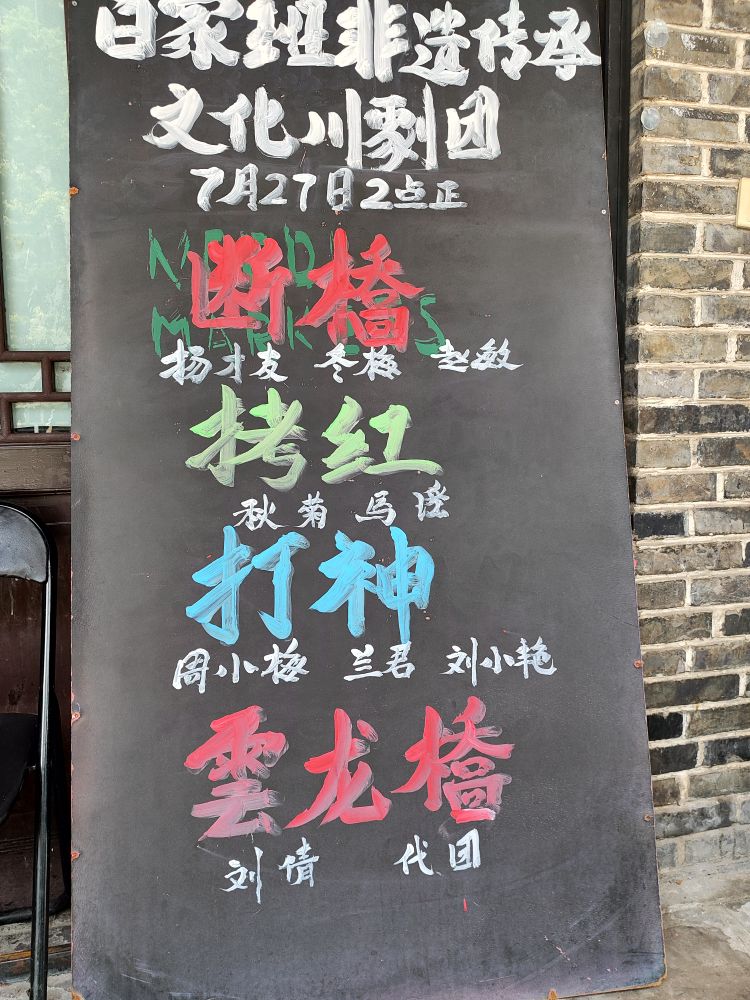 白家班非遗传承
文化川剧团
7月27日2点正
断橋
杨才友 冬梅 赵敏
拷红
秋菊 马瑶
打神
周小梅 兰君 刘小艳
雲龙橋
刘倩 代团